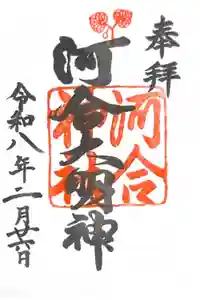 奉拝
河合大明神
河合
神社
令和八年二月廿六日